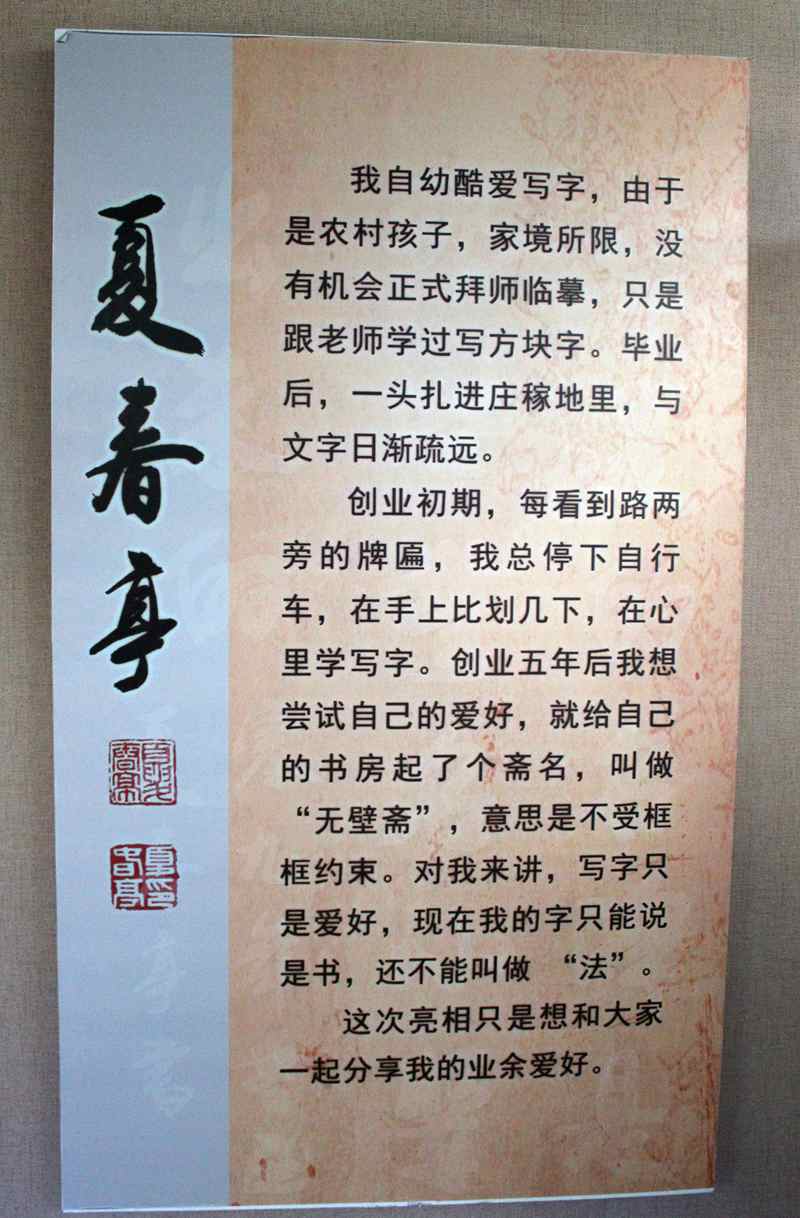 夏春亭
我自幼酷爱写字，由于
是农村孩子，家境所限，没
有机会正式拜师临摹，只是
跟老师学过写方块字。毕业
后，一头扎进庄稼地里，与
文字日渐疏远。
创业初期，每看到路两
旁的牌匾，我总停下自行
车，在手上比划几下，在心
里学写字。创业五年后我想
尝试自己的爱好，就给自己
的书房起了个斋名，叫做
“无壁斋”，意思是不受框
框约束。对我来讲，写字只
是爱好，现在我的字只能说
是书，还不能叫做 “法”。
这次亮相只是想和大家
一起分享我的业余爱好。